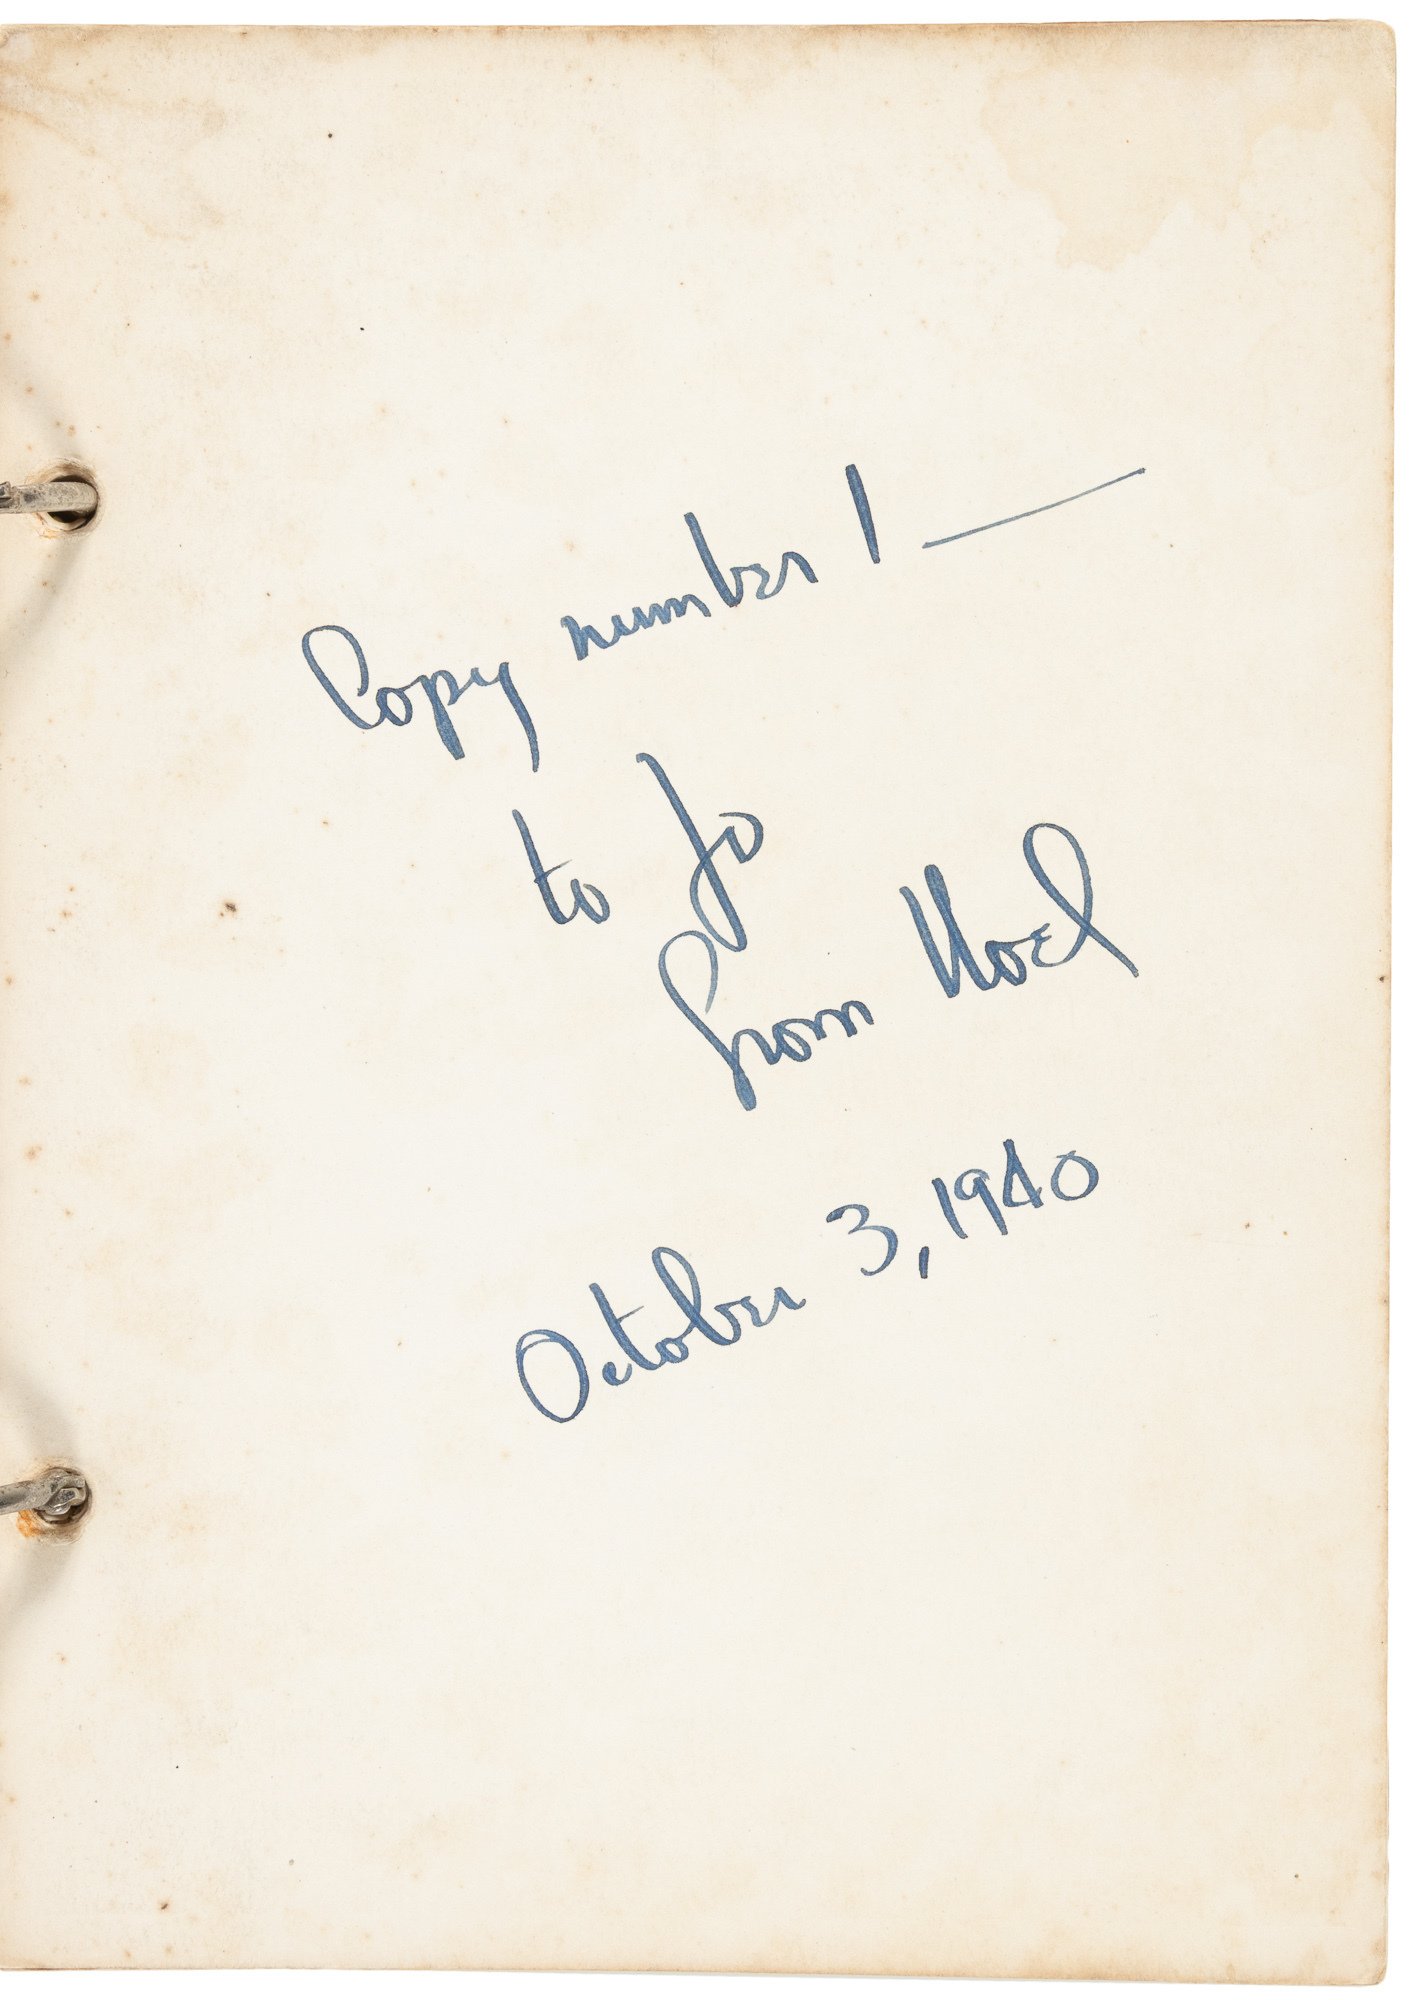 Copy number 1 —
to Jo
from Noel
October 3, 1940